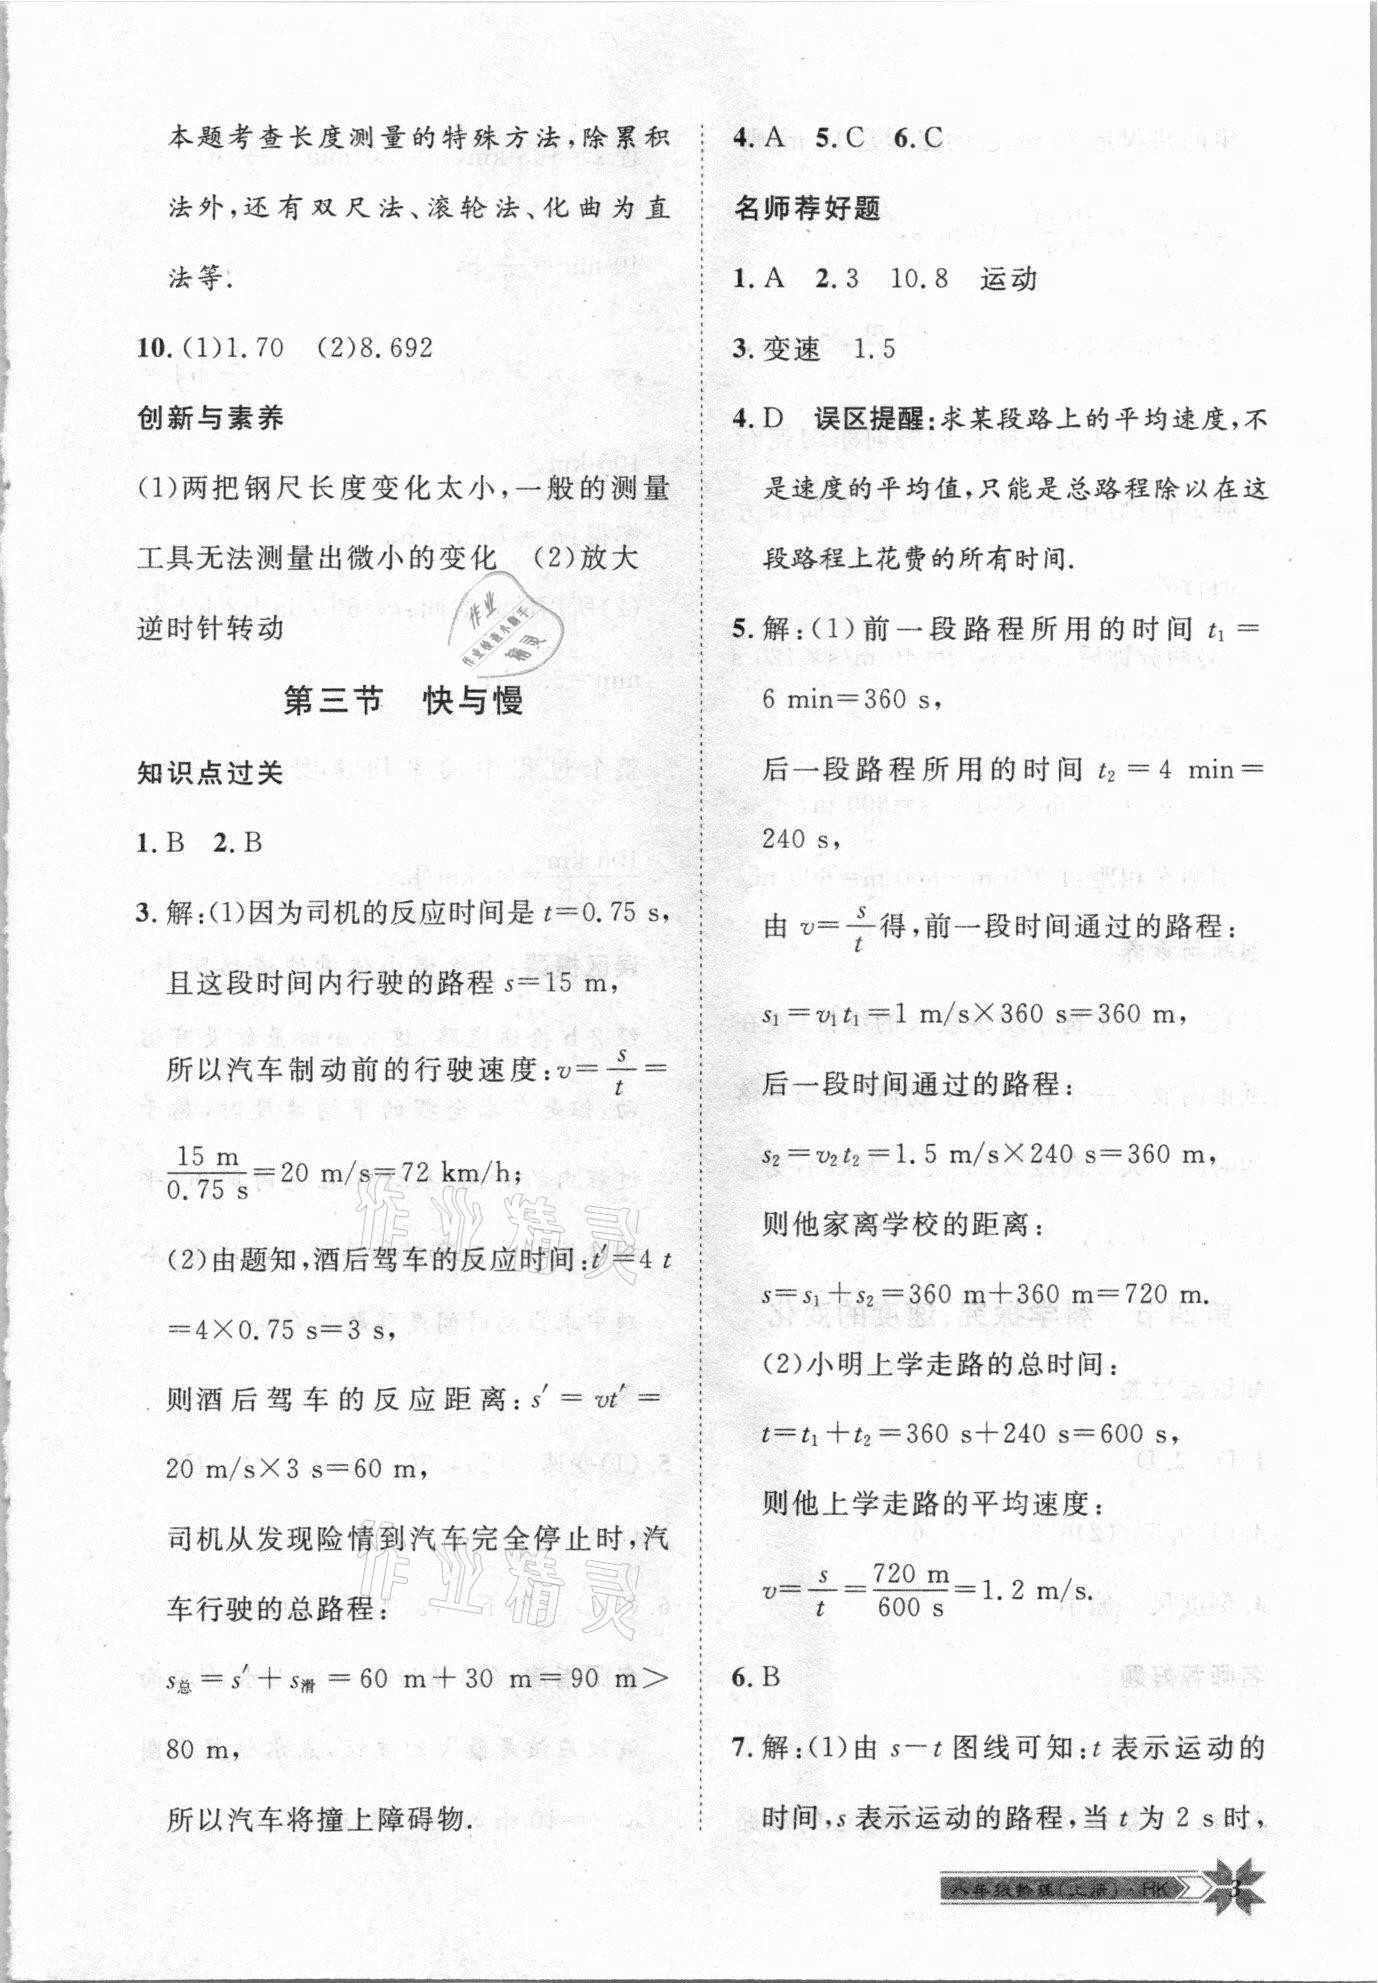 本题考查长度测量的特殊方法,除累积
法外,还有双尺法、滚轮法、化曲为直
法等.
10.(1)1.70 (2)8.692
创新与素养
(1)两把钢尺长度变化太小,一般的测量
工具无法测量出微小的变化 (2)放大
逆时针转动
第三节 快与慢
知识点过关
1.B 2.B
3.解:(1)因为司机的反应时间是t=0.75 s,
且这段时间内行驶的路程s=15 m,
所以汽车制动前的行驶速度:v=s/t=
15 m/0.75 s=20 m/s=72 km/h;
(2)由题知,酒后驾车的反应时间:t′=4 t
=4×0.75 s=3 s,
则酒后驾车的反应距离:s′=vt′=
20 m/s×3 s=60 m,
司机从发现险情到汽车完全停止时,汽
车行驶的总路程:
s总=s′+s滑=60 m+30 m=90 m>
80 m,
所以汽车将撞上障碍物.
4.A 5.C 6.C
名师荐好题
1.A 2.3 10.8 运动
3.变速 1.5
4.D 误区提醒:求某段路上的平均速度,不
是速度的平均值,只能是总路程除以在这
段路程上花费的所有时间.
5.解:(1)前一段路程所用的时间t₁=
6 min=360 s,
后一段路程所用的时间t₂=4 min=
240 s,
由v=s/t得,前一段时间通过的路程:
s₁=v₁t₁=1 m/s×360 s=360 m,
后一段时间通过的路程:
s₂=v₂t₂=1.5 m/s×240 s=360 m,
则他家离学校的距离:
s=s₁+s₂=360 m+360 m=720 m.
(2)小明上学走路的总时间:
t=t₁+t₂=360 s+240 s=600 s,
则他上学走路的平均速度:
v=s/t=720 m/600 s=1.2 m/s.
6.B
7.解:(1)由s-t图线可知:t表示运动的
时间,s表示运动的路程,当t为2 s时,
八年级物理(上册)·HK 3
作业精灵
作业精灵
作业
作业检查小助手
精灵